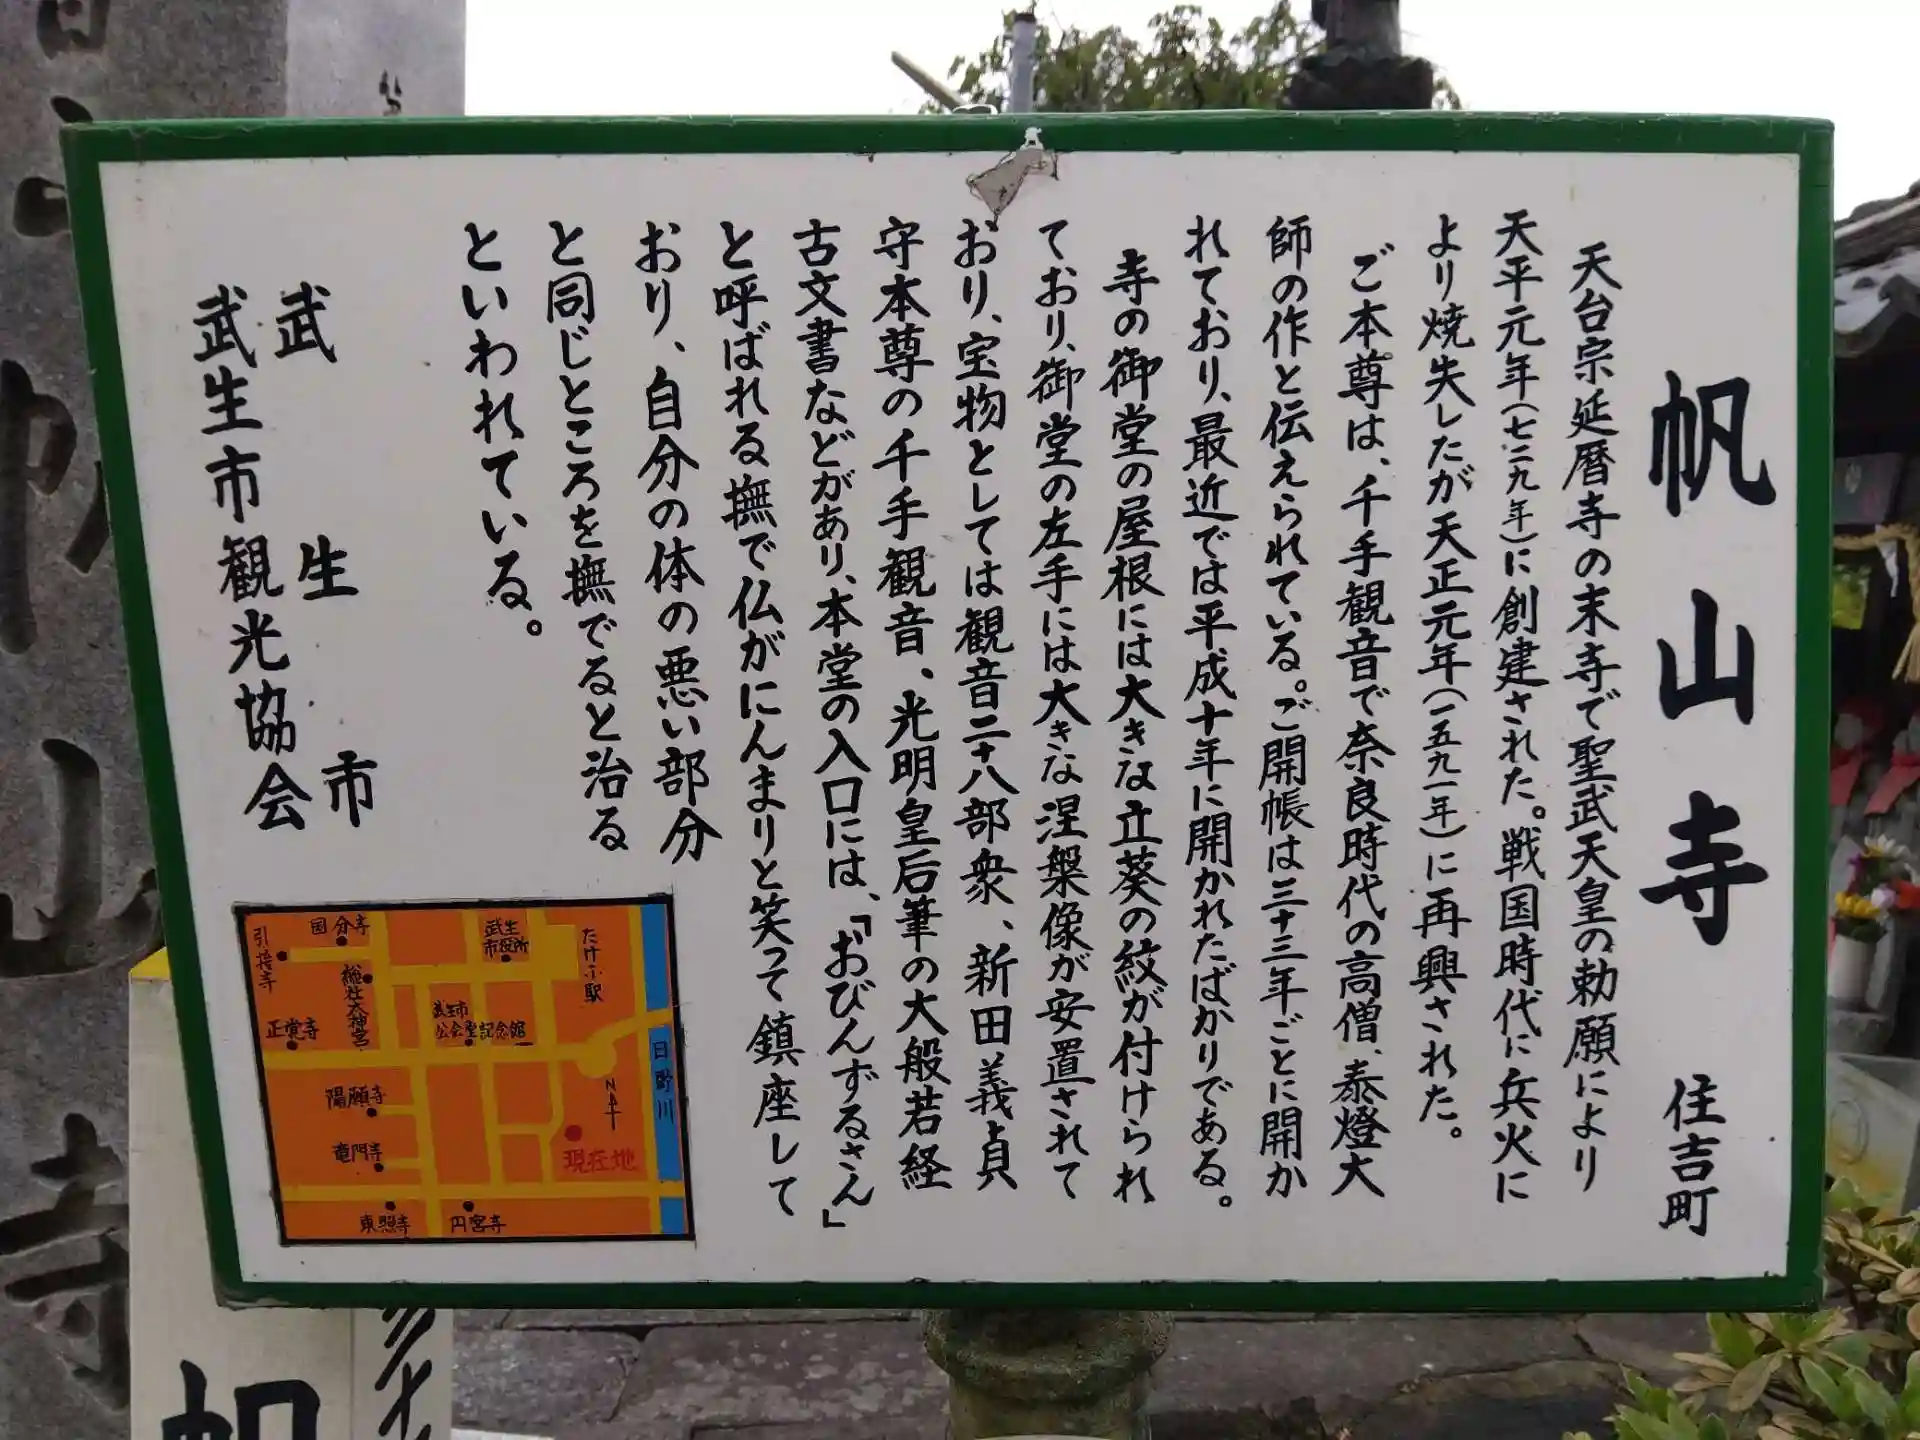 帆山寺 住吉町
天台宗延暦寺の末寺で聖武天皇の勅願により
天平元年(七二九年)に創建された。戦国時代に兵火に
より焼失したが天正元年(一五九一年)に再興された。
ご本尊は、千手観音で奈良時代の高僧、泰燈大
師の作と伝えられている。ご開帳は三十三年ごとに開か
れており、最近では平成十年に開かれたばかりである。
寺の御堂の屋根には大きな立葵の紋が付けられ
ており、御堂の左手には大きな涅槃像が安置されて
おり、宝物としては観音二十八部衆、新田義貞
守本尊の千手観音、光明皇后筆の大般若経
古文書などがあり、本堂の入口には、「おびんずるさん」
と呼ばれる撫で仏がにんまりと笑って鎮座して
おり、自分の体の悪い部分
と同じところを撫でると治る
といわれている。
武生市
武生市観光協会
国分寺
引接寺
総社大神宮
正覚寺
武生
市役所
武生市
公会堂記念館
たけふ駅
日野川
陽願寺
竜門寺
N
現在地
東照寺
円宮寺
帆山寺
帆